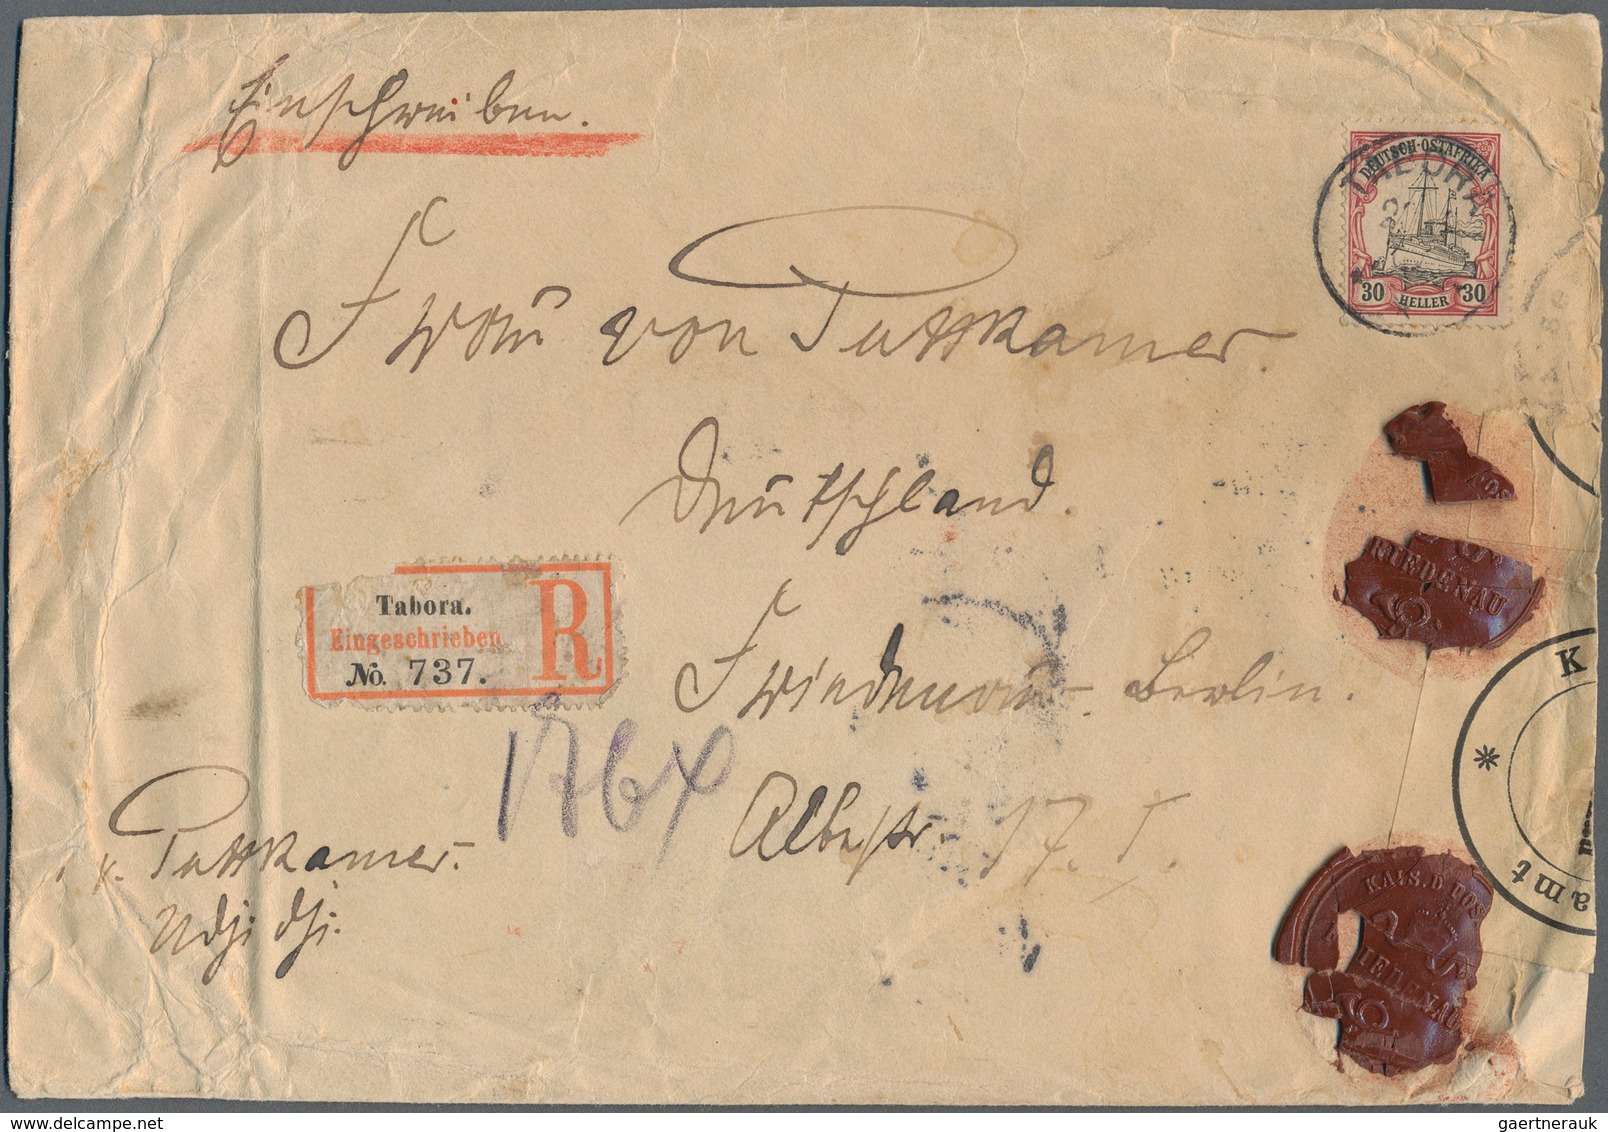 Einschreiben.
DEUTSCH-OSTAFRIKA
TABORA
30 HELLER 30
Frau von Puttkamer
Deutschland.
RIEDENAU
Tabora.
Eingeschrieben
No. 737.
R
Friedenau-Berlin.
K
176
Albestr. 17. I.
amt
v. Puttkamer.
Udjidji.
KAIS. D. POS
IEDENAU
gaertnerauk